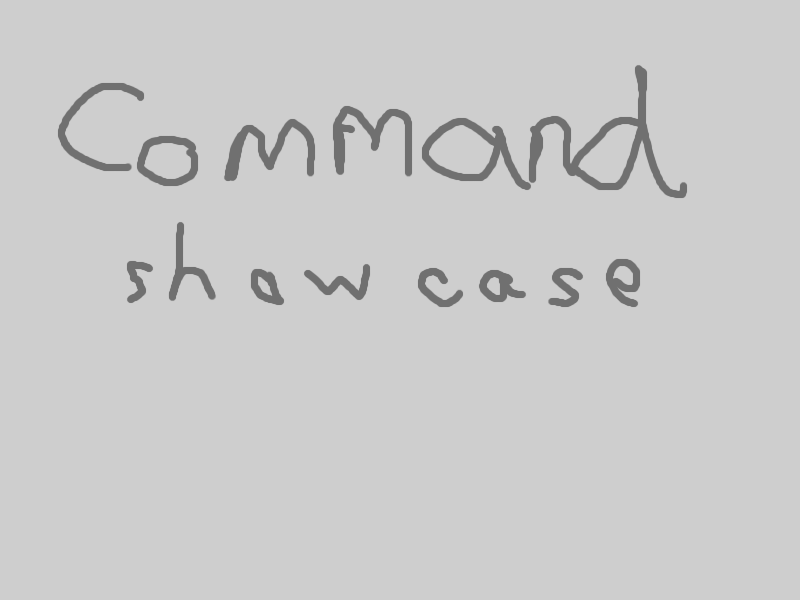 Command
showcase